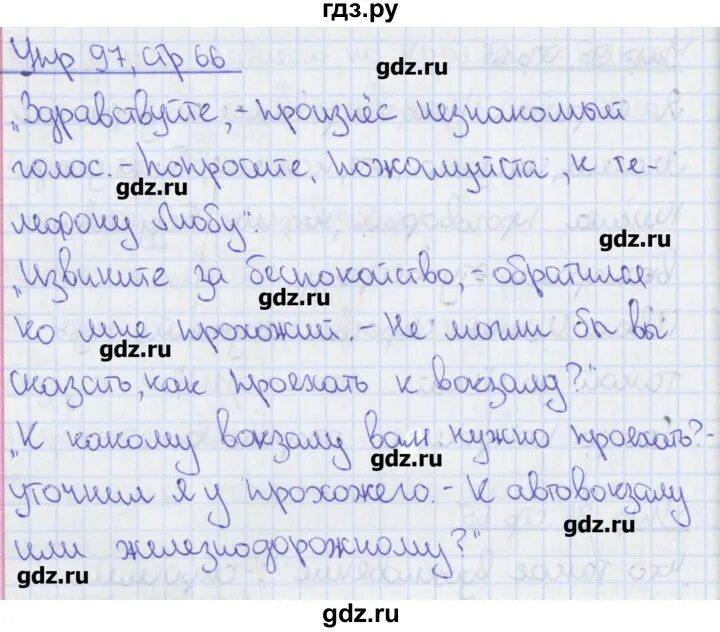 гдз.ру
Упр 97, стр 66
gdz.ru
„Здравствуйте, - произнёс незнакомый
голос. - Попросите, пожалуйста, к те-
gdz.ru
лефону Любу".
gdz.ru
„Извините за беспокойство, - обратился
gdz.ru
ко мне прохожий. - Не могли бы вы
gdz.ru
сказать, как проехать к вокзалу?"
„К какому вокзалу вам нужно проехать? -
gdz.ru
уточнил я у прохожего. - К автовокзалу
gdz.ru
или железнодорожному?"
gdz.ru
gdz.ru